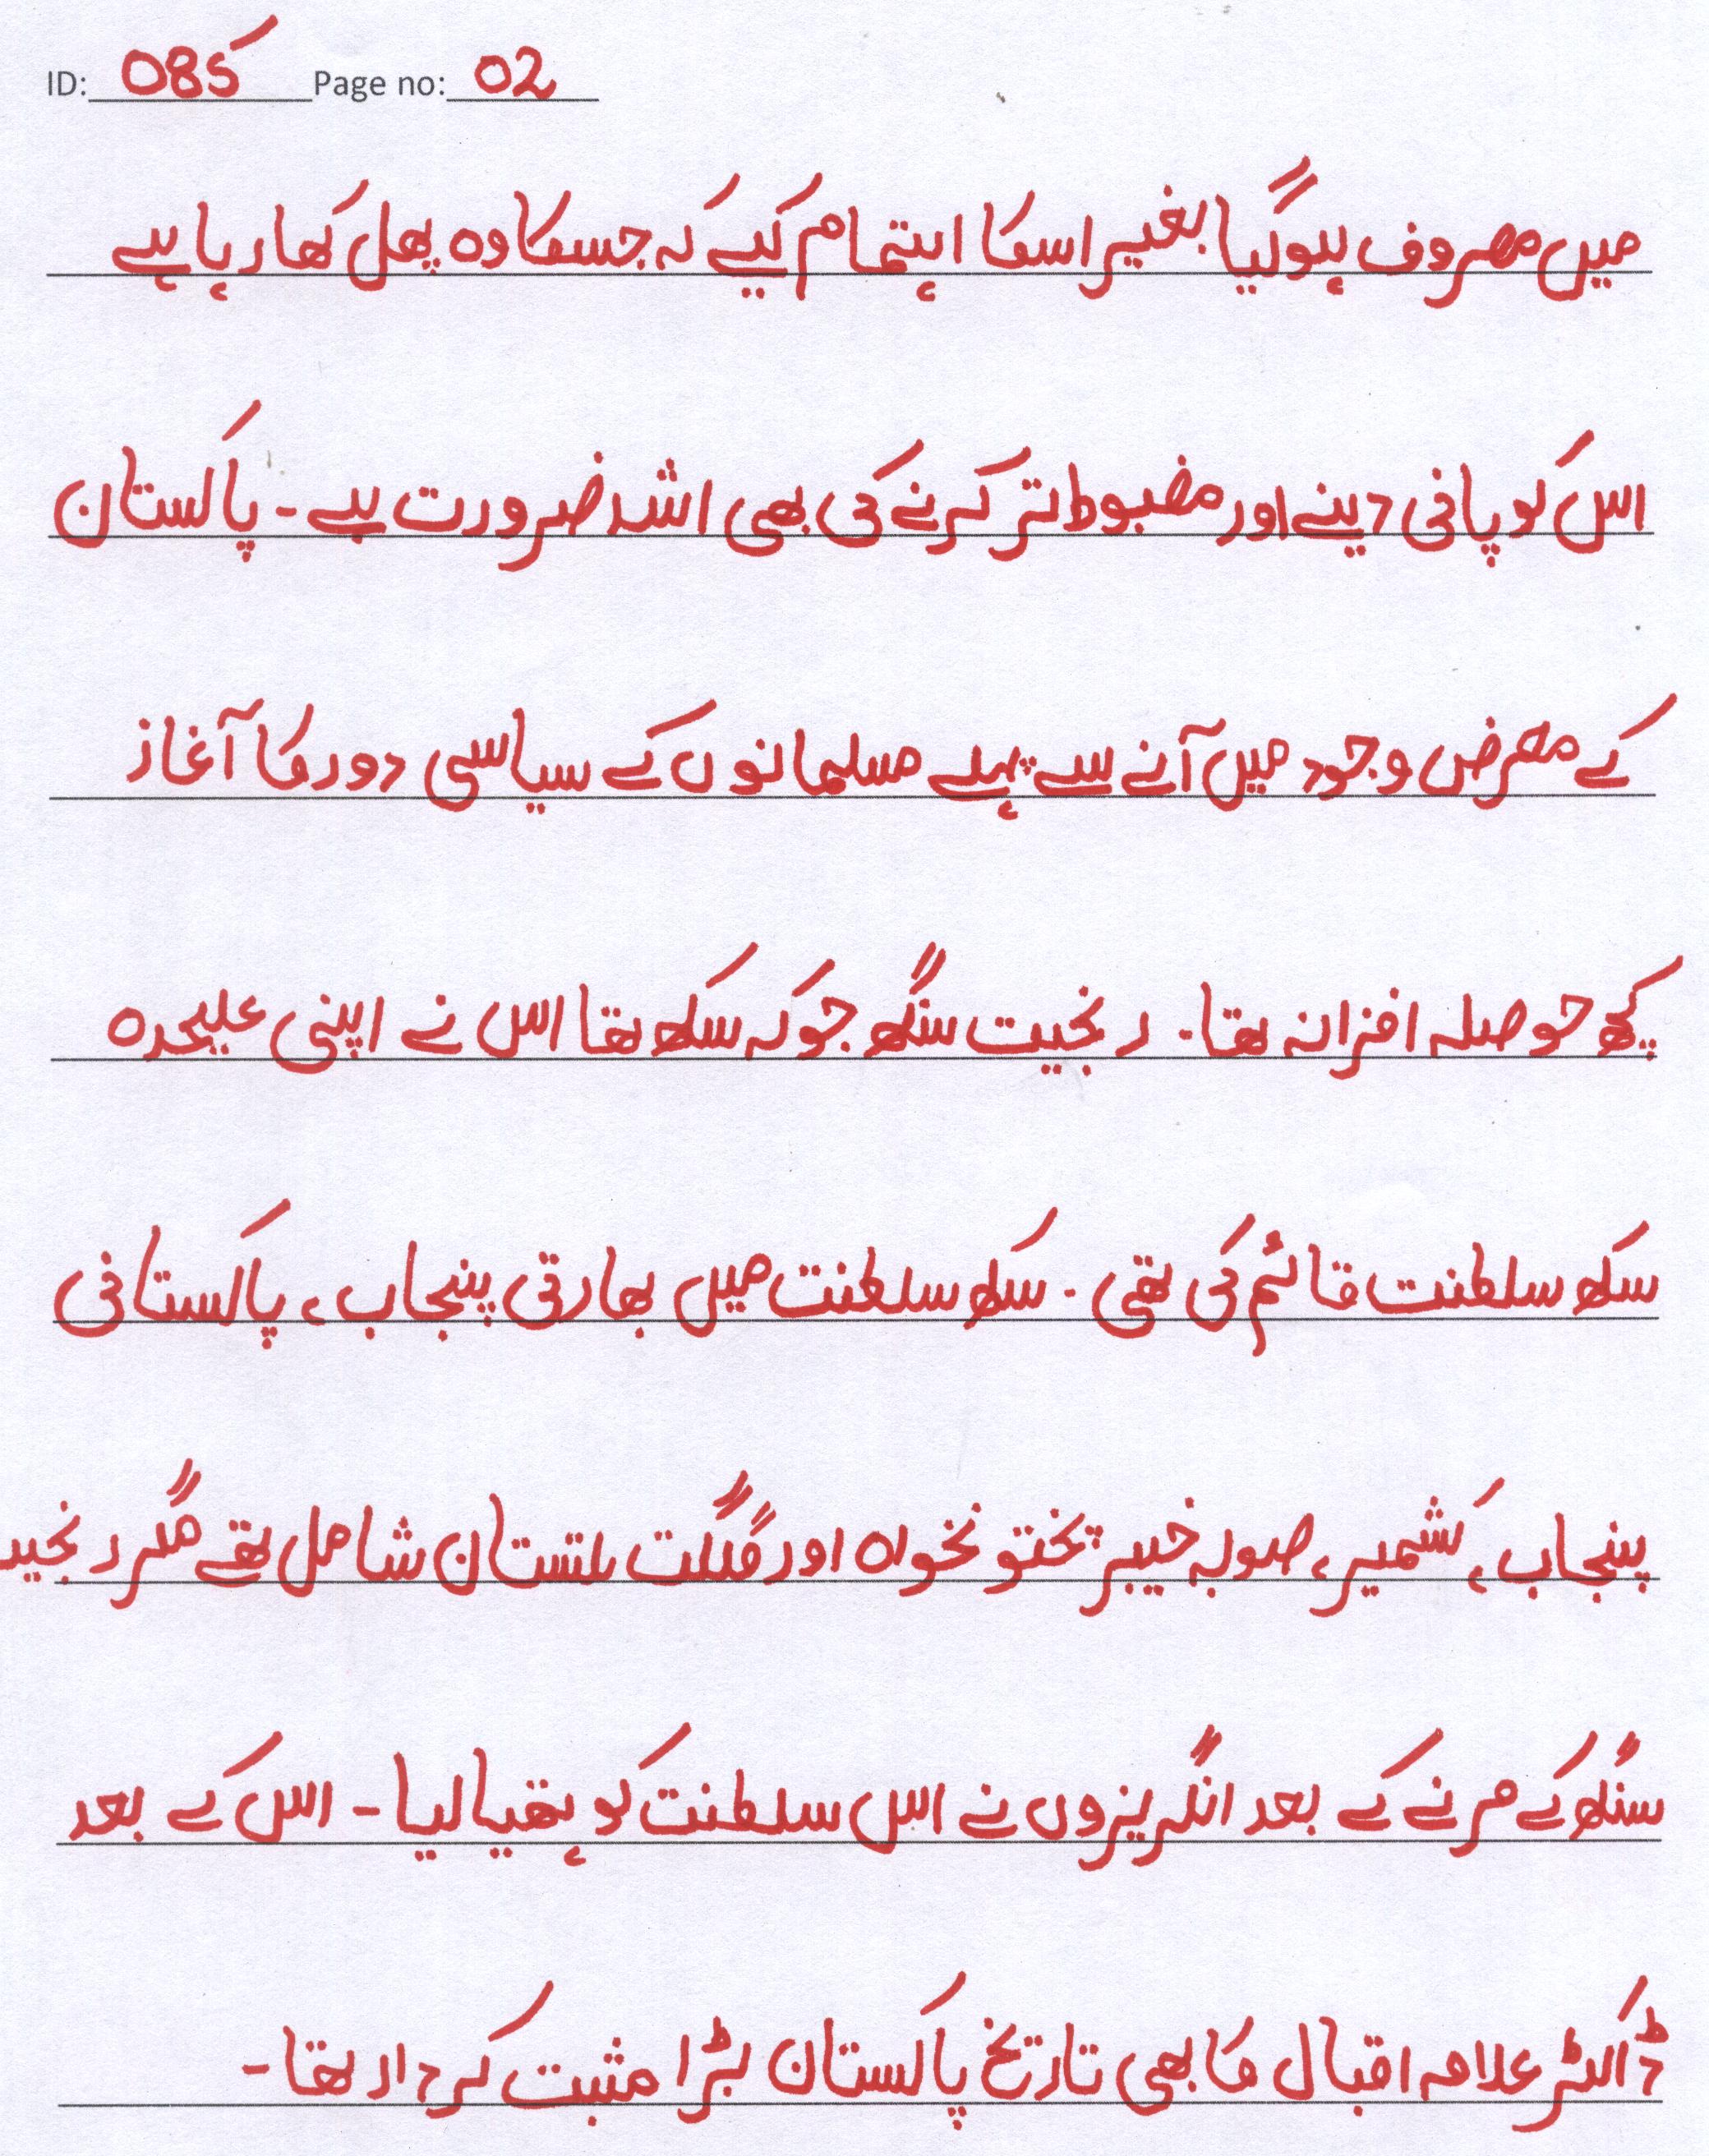 ID: 085 Page no: 02
میں مصروف ہوگیا بغیر اسکا اہتمام کیے کہ جسکا وہ پھل کھا رہا ہے
اس کو پانی دینے اور مضبوط تر کرنے کی بھی اشد ضرورت ہے۔ پاکستان
کے معرض وجود میں آنے سے پہلے مسلمانوں کے سیاسی دور کا آغاز
کچھ حوصلہ افزا نہ تھا۔ رنجیت سنگھ جو کہ سکھ تھا اس نے اپنی علیحدہ
سکھ سلطنت قائم کی تھی۔ سکھ سلطنت میں بھارتی پنجاب، پاکستانی
پنجاب، کشمیر، صوبہ خیبر پختونخواہ اور گلگت بلتستان شامل تھے مگر رنجیت
سنگھ کے مرنے کے بعد انگریزوں نے اس سلطنت کو ہتھیا لیا۔ اس کے بعد
ڈاکٹر علامہ اقبال کا بھی تاریخ پاکستان بڑا مثبت کردار تھا۔